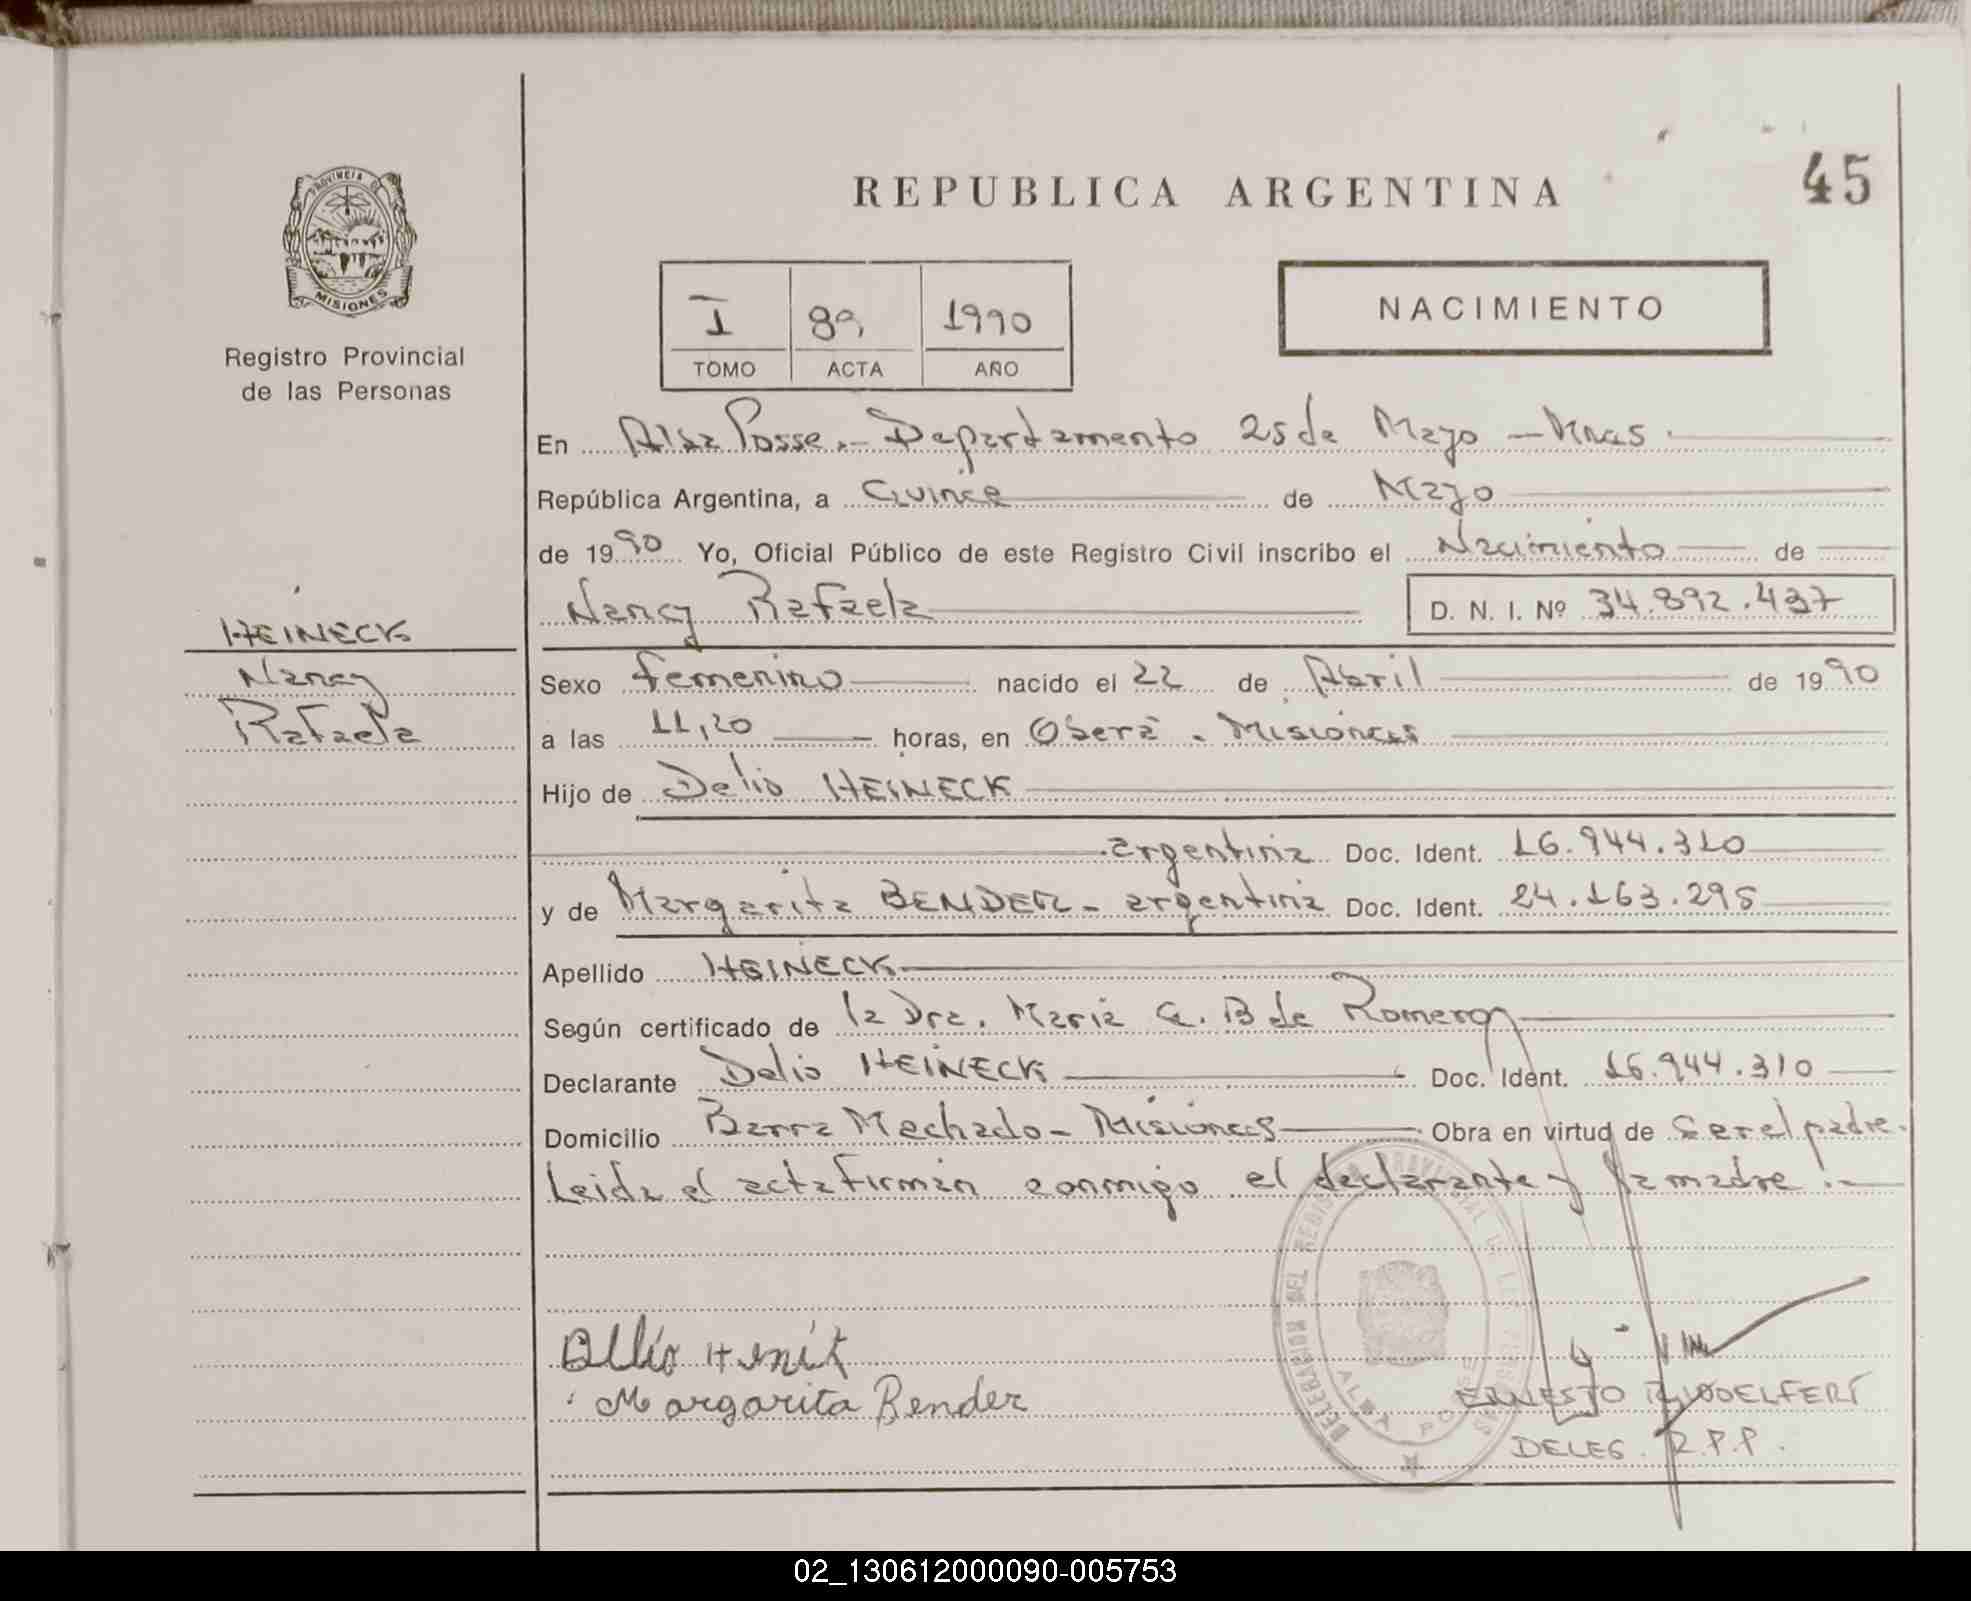 REPUBLICA ARGENTINA
45
PROVINCIA DE
MISIONES
Registro Provincial
de las Personas
I 89 1990
TOMO ACTA AÑO
NACIMIENTO
En Alba Posse.- Departamento 25 de Mayo - Mnes.
República Argentina, a Quince de Mayo
de 1990 Yo, Oficial Público de este Registro Civil inscribo el Nacimiento de
Nancy Rafaela D. N. I. Nº 34.892.437
HEINECK
Nancy
Rafaela
Sexo femenino nacido el 22 de Abril de 1990
a las 11,20 horas, en Oberá - Misiones
Hijo de Delio HEINECK
argentina Doc. Ident. 16.944.310
y de Margarita BENDER - argentina Doc. Ident. 24.163.295
Apellido HEINECK
Según certificado de la Dra. Maria G. B de Romero
Declarante Delio HEINECK Doc. Ident. 16.944.310
Domicilio Barra Machado - Misiones Obra en virtud de Ser el padre.
Leida el acta firman conmigo el declarante y la madre.-
Margarita Bender
DELEGACION DEL REGISTRO PROVINCIAL DE LAS PERSONAS
ALBA POSSE
ERNESTO
DELEG. R.P.P.
02_130612000090-005753